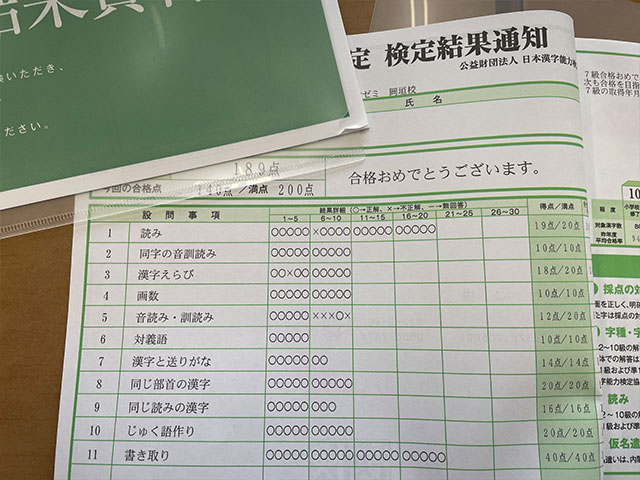 いただき、
ださい。
定 検定結果通知
公益財団法人 日本漢字能力検
ゼミ 岡垣校
氏 名
189点
今回の合格点 140点 /満点 200点
合格おめでとうございます。
設問事項 結果詳細(○→正解、×→不正解、―→無回答) 得点/満点
1~5 6~10 11~15 16~20 21~25 26~30
1 読み ○○○○○ ×○○○○ ○○○○○ ○○○○○ 19点/20点
2 同字の音訓読み ○○○○○ ○○○○○ 10点/10点
3 漢字えらび ○○×○○ ○○○○○ 18点/20点
4 画数 ○○○○○ ○○○○○ 10点/10点
5 音読み・訓読み ○○○○○ ×××○× 12点/20点
6 対義語 ○○○○○ 10点/10点
7 漢字と送りがな ○○○○○ ○○ 14点/14点
8 同じ部首の漢字 ○○○○○ ○○○○○ 20点/20点
9 同じ読みの漢字 ○○○○○ ○○○ 16点/16点
10 じゅく語作り ○○○○○ ○○○○○ 20点/20点
11 書き取り ○○○○○ ○○○○○ ○○○○○ ○○○○○ 40点/40点
7級合格おめで
次も合格を目指
7級の取得年月
10
程度 小学校
修了
対象漢字数
昨年度
平均合格率
採点の対
面を正しく、明確
字種・字
2~10級の解答
読み
仮名遣